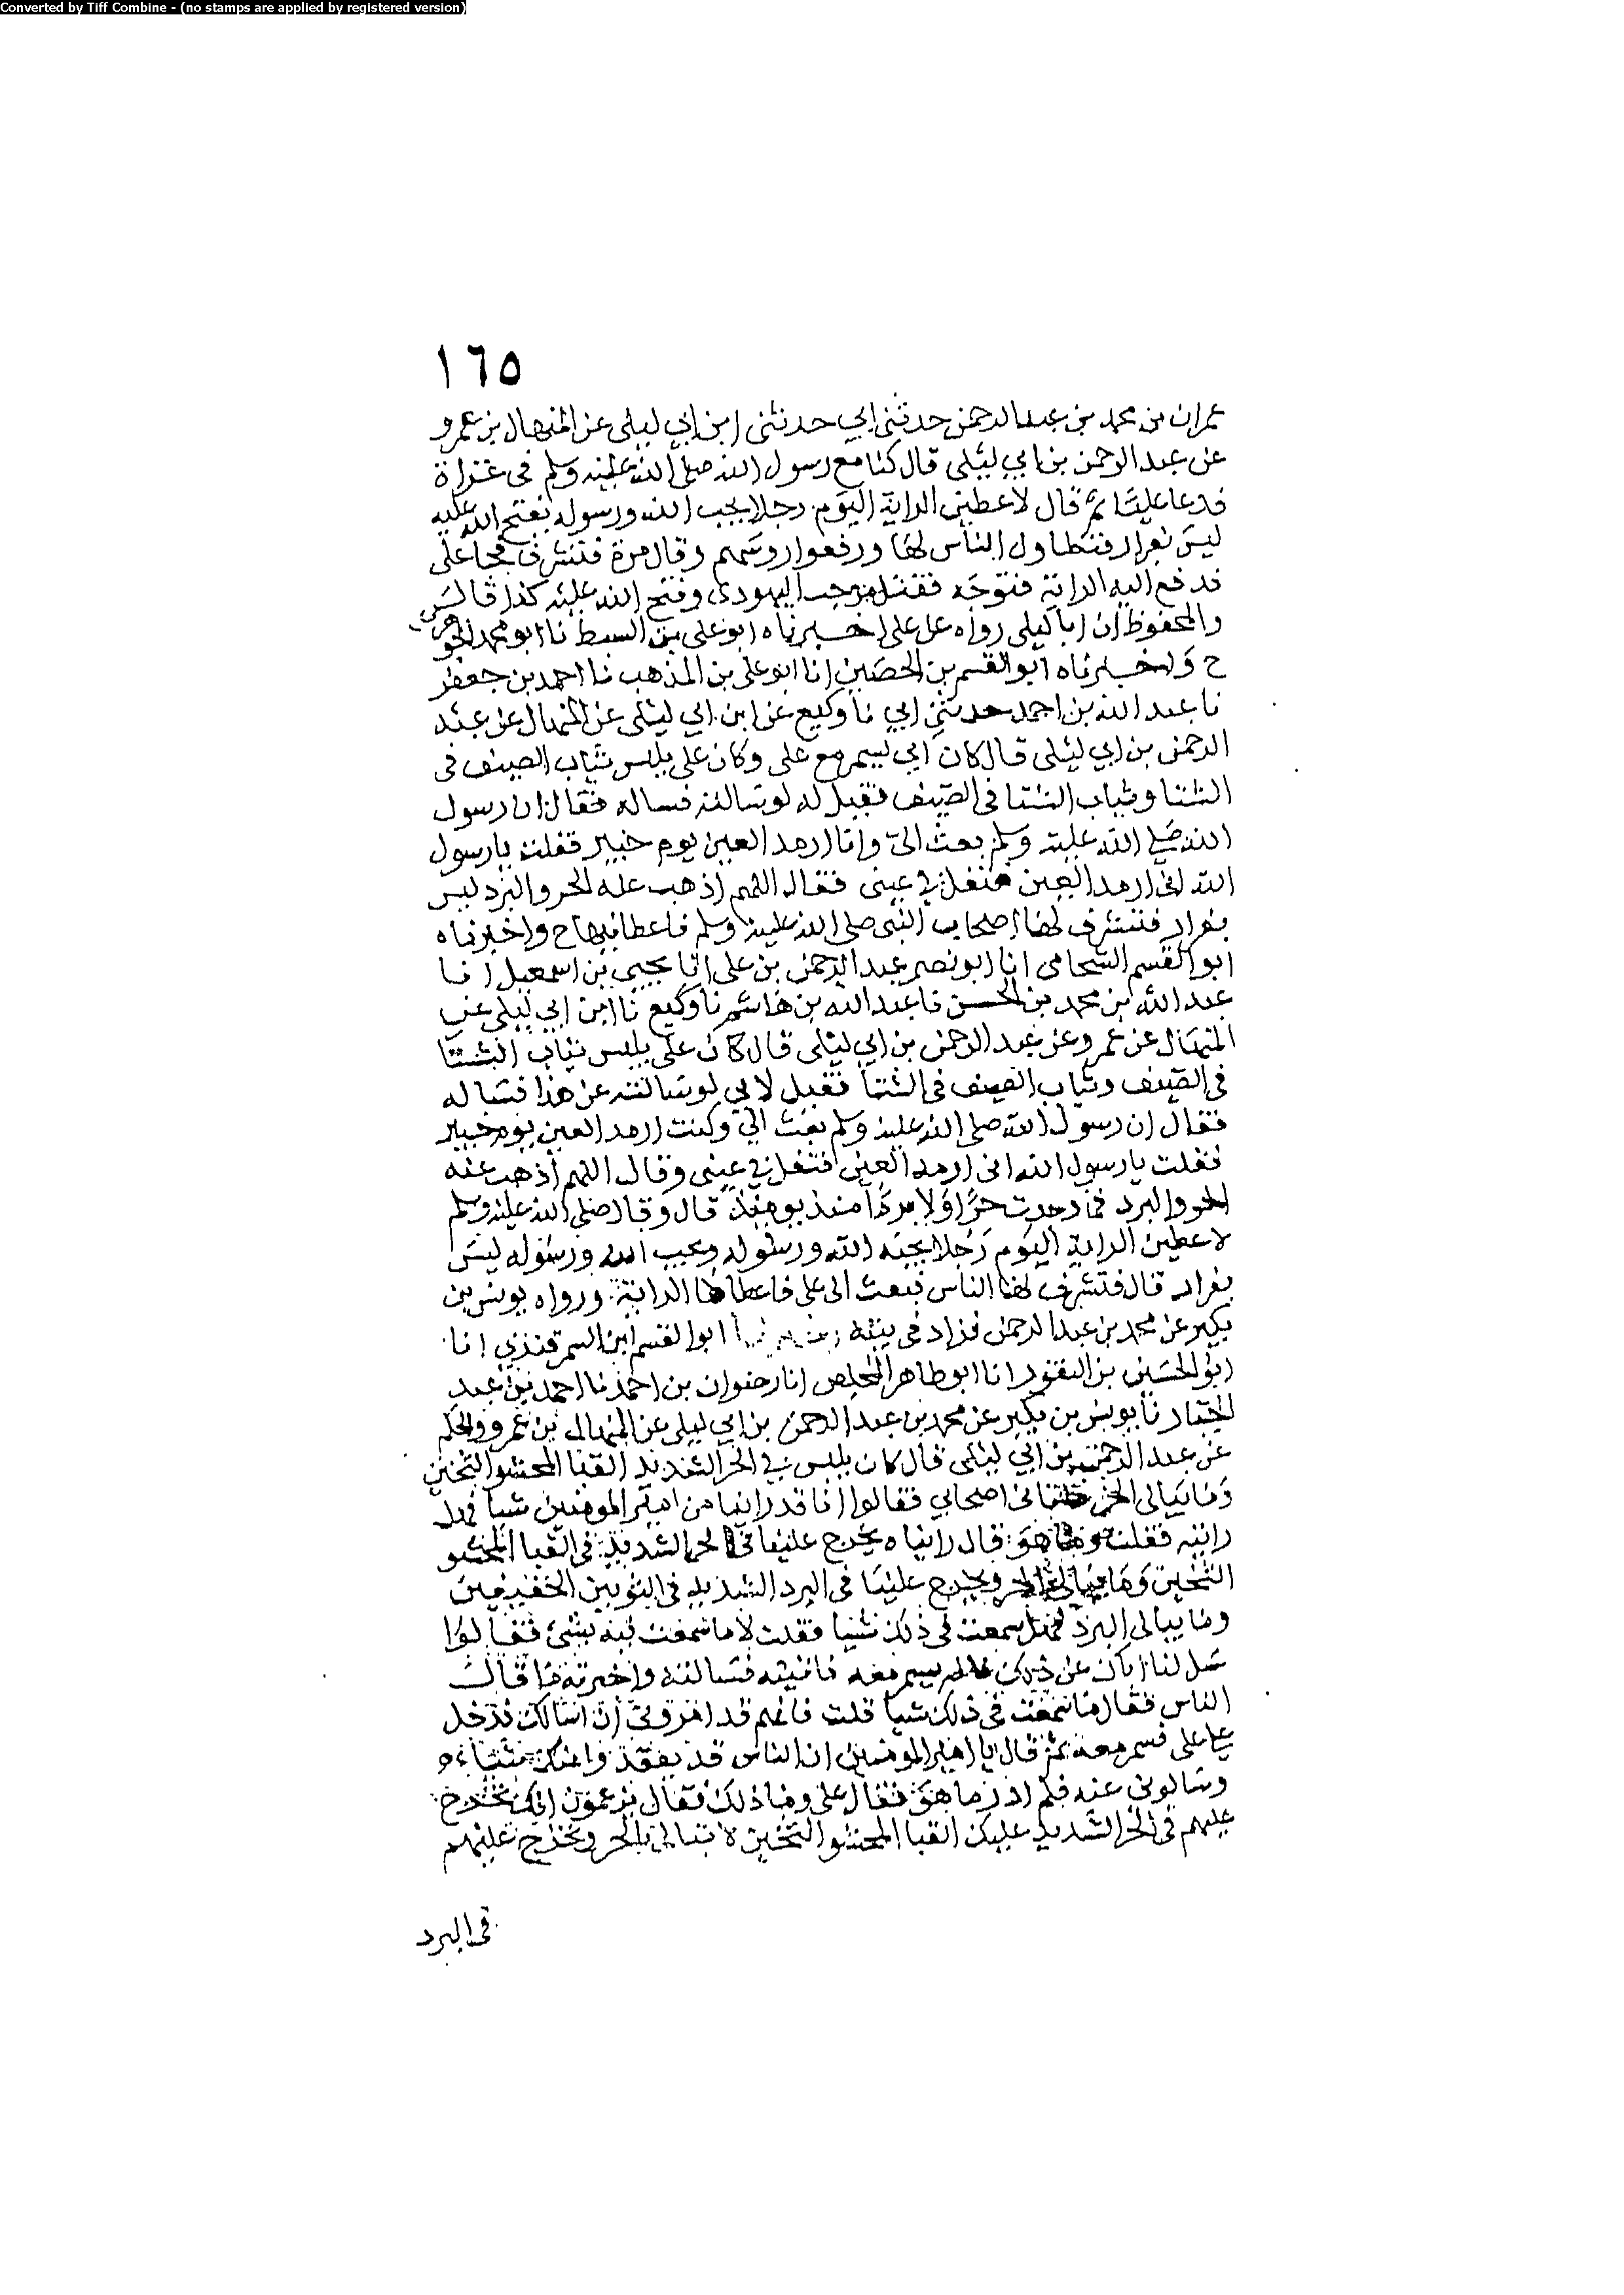 Converted by Tiff Combine - (no stamps are applied by registered version)
١٦٥
عمران بن محمد بن عبد الرحمن حدثني ابي حدثني ابن ابي ليلى عن المنهال بن عمرو
عن عبد الرحمن بن ابي ليلى قال كنا مع رسول الله صلى الله عليه وسلم فى غزاة
فدعا عليا ثم قال لاعطين الراية اليوم رجلا يحب الله ورسوله يفتح الله عليه
ليس بفرار فتطاول الناس لها ورفعوا روسهم وقال مرة فتشرف فجا على
فدفع اليه الراية فتوجه فقتل مرحب اليهودى وفتح الله عليه كذا قالس
والمحفوظ ان ابا ليلى رواه عن على اخبرناه ابو على بن السبط نا ابو محمد الجوهرى
ح واخبرناه ابو القسم بن الحصين انا ابو على بن المذهب نا احمد بن جعفر
نا عبد الله بن احمد حدثني ابي نا وكيع عن ابن ابي ليلى عن المنهال عن عبد
الرحمن بن ابي ليلى قال كان ابي يسمر مع على وكان على يلبس ثياب الصيف فى
الشتا وثياب الشتا فى الصيف فقيل له لو سالته فساله فقال ان رسول
الله صلى الله عليه وسلم بعث الى وانا ارمد العين يوم خيبر فقلت يا رسول
الله انى ارمد العين فتفل في عينى فقال اللهم اذهب عنه الحر والبرد ليس
بفرار فتشرف لها اصحاب النبى صلى الله عليه وسلم فاعطانيها ح واخبرناه
ابو القسم الشحامى انا ابو نصر عبد الرحمن بن على انا يحيى بن اسمعيل انا
عبد الله بن محمد بن الحسن نا عبد الله بن هاشم نا وكيع نا ابن ابي ليلى عن
المنهال عن عمرو عن عبد الرحمن بن ابي ليلى قال كان على يلبس ثياب الشتا
فى الصيف وثياب الصيف فى الشتا فقيل لابي لو سالته عن هذا فساله
فقال ان رسول الله صلى الله عليه وسلم بعث الى وكنت ارمد العين يوم خيبر
فقلت يا رسول الله انى ارمد العين فتفل في عينى وقال اللهم اذهب عنه
الحر والبرد فما وجدت حرا ولا بردا منذ يومئذ قال وقال صلى الله عليه وسلم
لاعطين الراية اليوم رجلا يحبه الله ورسوله ويحب الله ورسوله ليس
بفرار قال فتشرف لها الناس فبعث الى على فاعطاها الراية ورواه يونس بن
بكير عن محمد بن عبد الرحمن فزاد فى متنه ابو القسم ابن السمرقندي انا
ابو الحسين بن النقور انا ابو طاهر المخلص انا رضوان بن احمد نا احمد بن عبد
الجبار نا يونس بن بكير عن محمد بن عبد الرحمن بن ابي ليلى عن المنهال بن عمرو والحكم
عن عبد الرحمن بن ابي ليلى قال كان يلبس في الحر الشديد القبا المحشو الثخين
وما يبالى الحر فاتانى اصحابي فقالوا انا قد راينا من امير المومنين شيا فهل
رايته فقلت وما هو قال رايناه يخرج علينا فى الحر الشديد فى القبا المحشو
الثخين وما يبالى الحر ويخرج علينا فى البرد الشديد فى الثوبين الخفيفين
وما يبالى البرد فهل سمعت فى ذلك شيا فقلت لا ما سمعت فيه بشئ فقالوا
سل لنا اباك عن ذلك فانه يسمر معه فاتيته فسالته واخبرته ما قال
الناس فقال ما سمعت فى ذلك شيا قلت فانهم قد امرونى ان اسالك فدخل
على على فسمر معه ثم قال يا امير المومنين ان الناس قد تفقدوا منك شيا
وسالونى عنه فلم ادر ما هو فقال على وما ذلك فقال يزعمون انك تخرج
عليهم فى الحر الشديد عليك القبا المحشو الثخين لا تبالى بالحر وتخرج عليهم
فى البرد